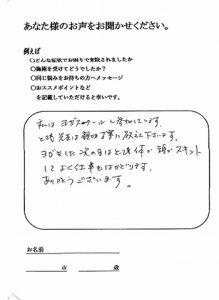 あなた様のお声をお聞かせください。
例えば
○どんな症状でお困りで来院されましたか
○施術を受けてどうでしたか?
○同じ悩みをお持ちの方へメッセージ
○おススメポイントなど
を記載していただけると幸いです。
私は ヨガスクールに参加しています。
先生は親切丁寧に教えて下さいます。
ヨガをした次の日はとても体が頭がスキッと
して よく仕事もはかどります。
ありがとうございます。
お名前
市 歳